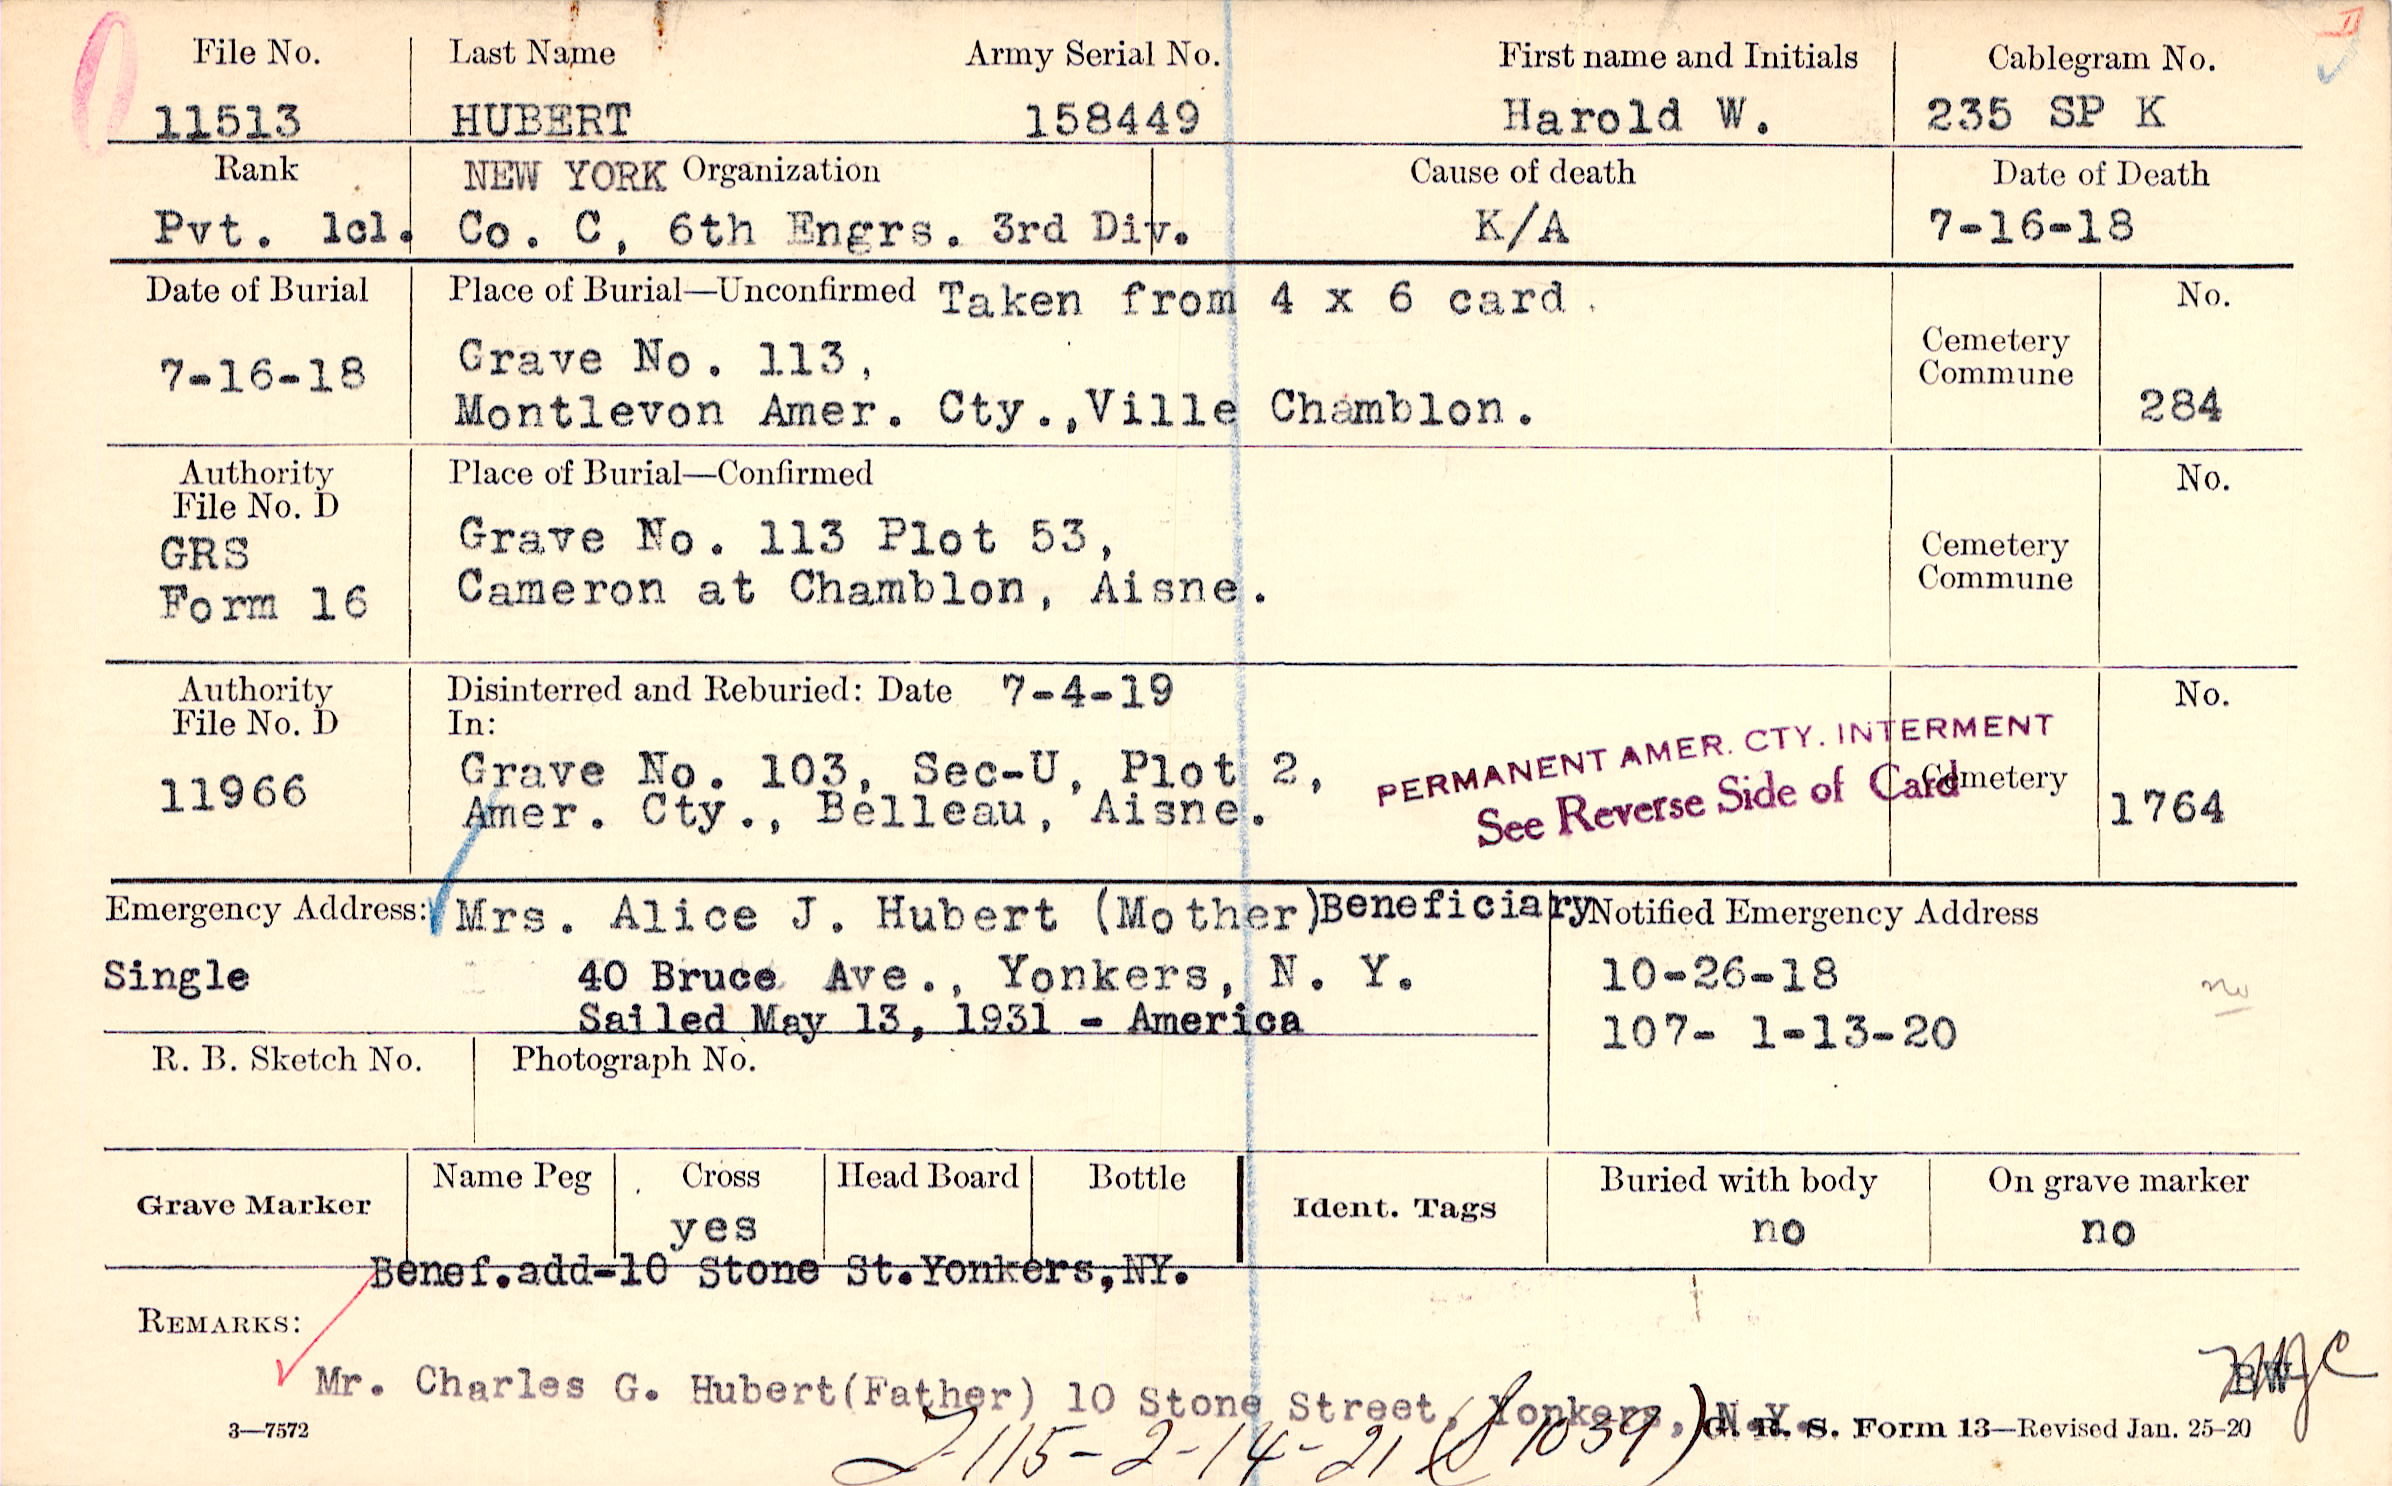 File No. Last Name Army Serial No. First name and Initials Cablegram No.
11513 HUBERT 158449 Harold W. 235 SP K
Rank NEW YORK Organization Cause of death Date of Death
Pvt. 1cl. Co. C, 6th Engrs. 3rd Div. K/A 7-16-18
Date of Burial Place of Burial—Unconfirmed Taken from 4 x 6 card. No.
7-16-18 Grave No. 113, Cemetery
Commune
Montlevon Amer. Cty.,Ville Chamblon. 284
Authority Place of Burial—Confirmed No.
File No. D
GRS Grave No. 113 Plot 53, Cemetery
Form 16 Cameron at Chamblon, Aisne. Commune
Authority Disinterred and Reburied: Date 7-4-19 No.
File No. D In:
PERMANENT AMER. CTY. INTERMENT
11966 Grave No. 103, Sec-U, Plot 2, See Reverse Side of Card Cemetery
Amer. Cty., Belleau, Aisne. 1764
Emergency Address: Mrs. Alice J. Hubert (Mother)Beneficiary Notified Emergency Address
Single 40 Bruce Ave., Yonkers, N. Y. 10-26-18 no
Sailed May 13, 1931 - America 107- 1-13-20
R. B. Sketch No. Photograph No.
Grave Marker Name Peg Cross Head Board Bottle Ident. Tags Buried with body On grave marker
yes no no
Benef.add-10 Stone St.Yonkers,NY.
REMARKS:
BW
Mr. Charles G. Hubert(Father) 10 Stone Street, Yonkers, N.Y.
3—7572 G. R. S. Form 13—Revised Jan. 25-20
115-2-14-21 (S 1039)